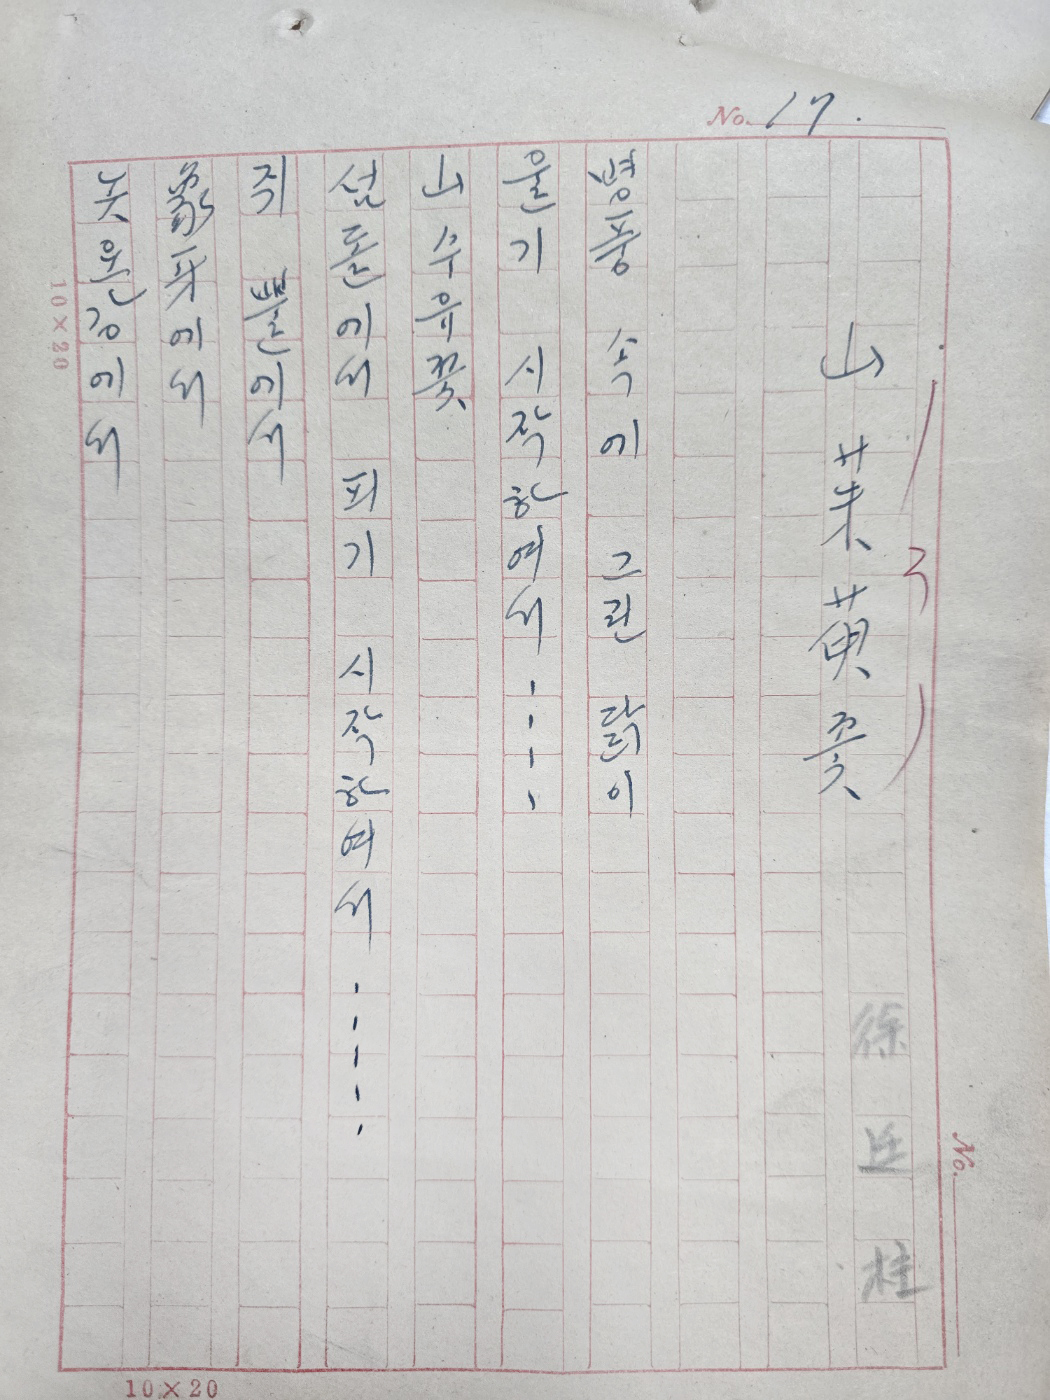 No. 17.
山茱萸꽃
徐廷柱
병풍 속에 그린 닭이
울기 시작하여서‥‥
山수유꽃
섬돌에서 피기 시작하여서‥‥‥
쥐 뿔에서
象牙에서
놋요강에서
No.
10×20
10×20